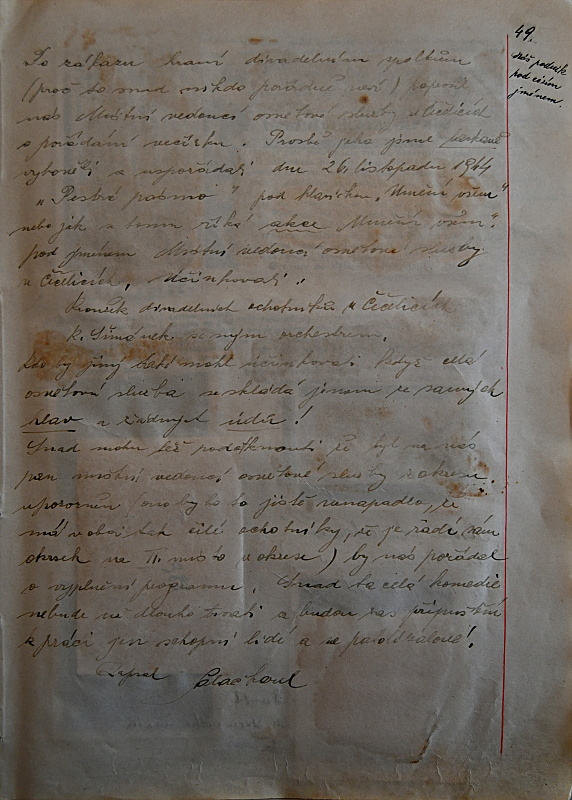 49.
náš podnik
pod cizím
jménem.
Po zákazu hraní divadelním spolkům
(proč to snad nikdo pořádně neví) požádal
nás Místní vedoucí osvětové služby v Čečelicích
o pořádání večírku. Prosbě jeho jsme
vyhověli a uspořádali dne 26. listopadu 1944
„Pestré pásmo" pod hlavičkou „Umění všem"
nebo jak se tomu říká akce „Umění všem".
pod jménem Místní vedoucí osvětové služby
v Čečelicích, Účinkovali:
Kroužek divadelních ochotníků v Čečelicích
K. Šimánek se svým orchestrem.
Kdo by jiný také mohl účinkovati když celá
osvětová služba se skládá jenom ze samých
hlav a žádných údů!
Snad mohu též podotknouti že byl na nás
pan místní vedoucí osvětové služby z okresu
upozorněn (ono by ho to jistě nenapadlo, že
má v obci tak čilé ochotníky, že je řadí sám
okrsek na II. místo v okrese) by nás požádal
o vyplnění programu. Snad ta celá komedie
nebude už dlouho trvati a budou zas připuštěni
k práci jen schopní lidé a ne
Zapsal